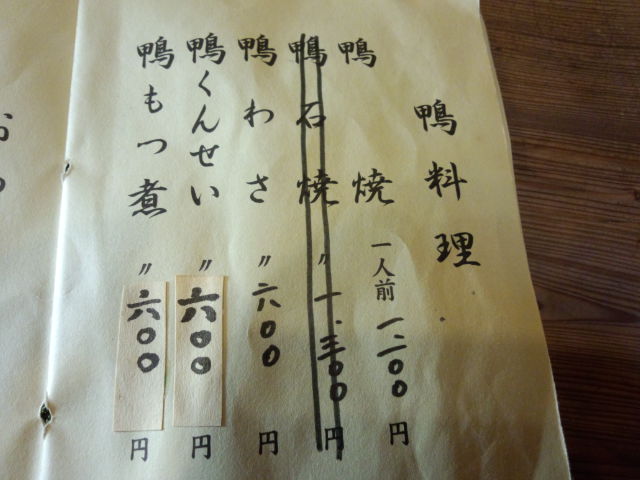 鴨料理
鴨焼 一人前 一、二〇〇円
鴨石焼 〃 一、三〇〇円
鴨わさ 〃 六〇〇円
鴨くんせい 〃 六〇〇円
鴨もつ煮 〃 六〇〇円